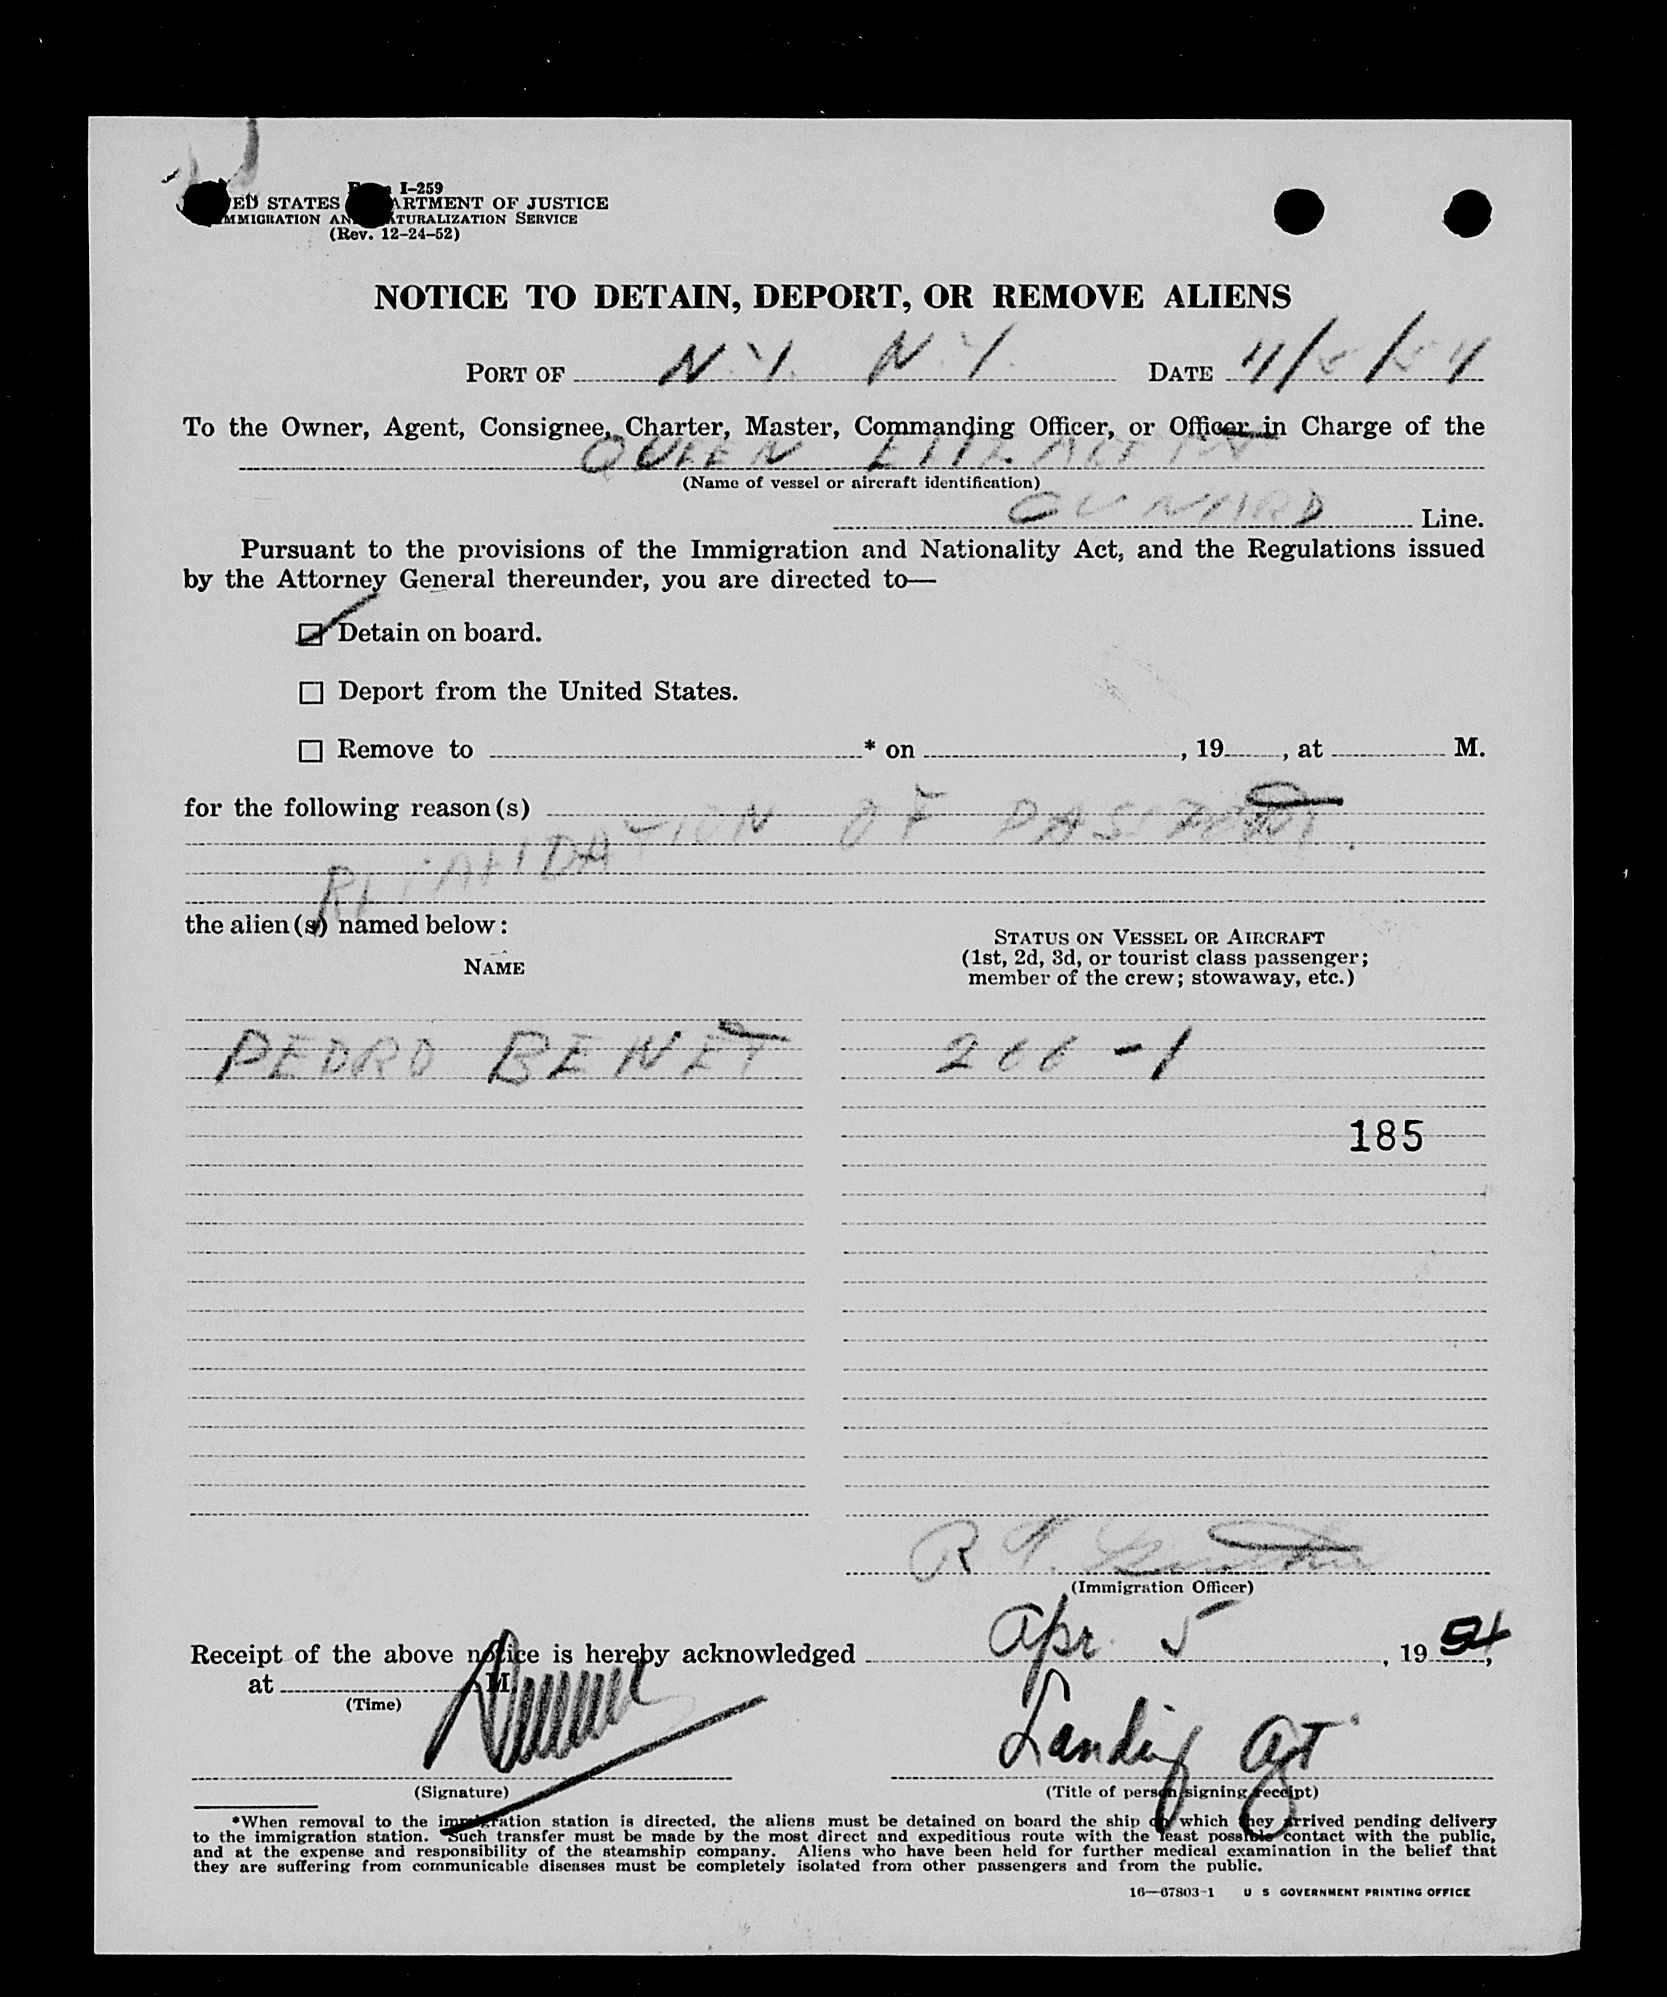 I-259
STATES OF JUSTICE
SERVICE
(Rev. 12-24-52)
NOTICE TO DETAIN, DEPORT, OR REMOVE ALIENS
PORT OF N.Y. N.Y. DATE 4/5/54
To the Owner, Agent, Consignee, Charter, Master, Commanding Officer, or Officer in Charge of the
QUEEN ELIZABETH
(Name of vessel or aircraft identification)
CUNARD Line.
Pursuant to the provisions of the Immigration and Nationality Act, and the Regulations issued
by the Attorney General thereunder, you are directed to—
Detain on board.
Deport from the United States.
Remove to * on , 19 , at M.
for the following reason(s)
REVALIDATION OF PASSPORT.
the alien(s) named below:
NAME
STATUS ON VESSEL OR AIRCRAFT
(1st, 2d, 3d, or tourist class passenger;
member of the crew; stowaway, etc.)
PEDRO BENET 266-1
185
(Immigration Officer)
Receipt of the above notice is hereby acknowledged Apr. 5, 1954,
at M.
(Time)
Landing Agt.
(Signature) (Title of person signing receipt)
*When removal to the immigration station is directed, the aliens must be detained on board the ship on which they arrived pending delivery
to the immigration station. Such transfer must be made by the most direct and expeditious route with the least possible contact with the public,
and at the expense and responsibility of the steamship company. Aliens who have been held for further medical examination in the belief that
they are suffering from communicable diseases must be completely isolated from other passengers and from the public.
16—67803-1 U S GOVERNMENT PRINTING OFFICE